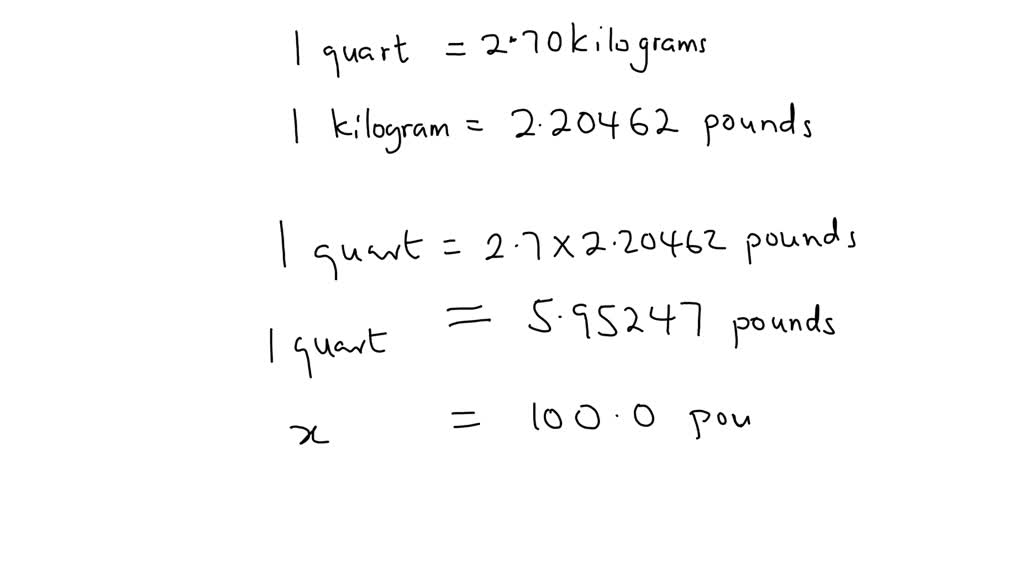 1 quart = 2.70 kilograms
1 kilogram = 2.20462 pounds
1 quart = 2.7 x 2.20462 pounds
1 quart = 5.95247 pounds
x = 100.0 pou